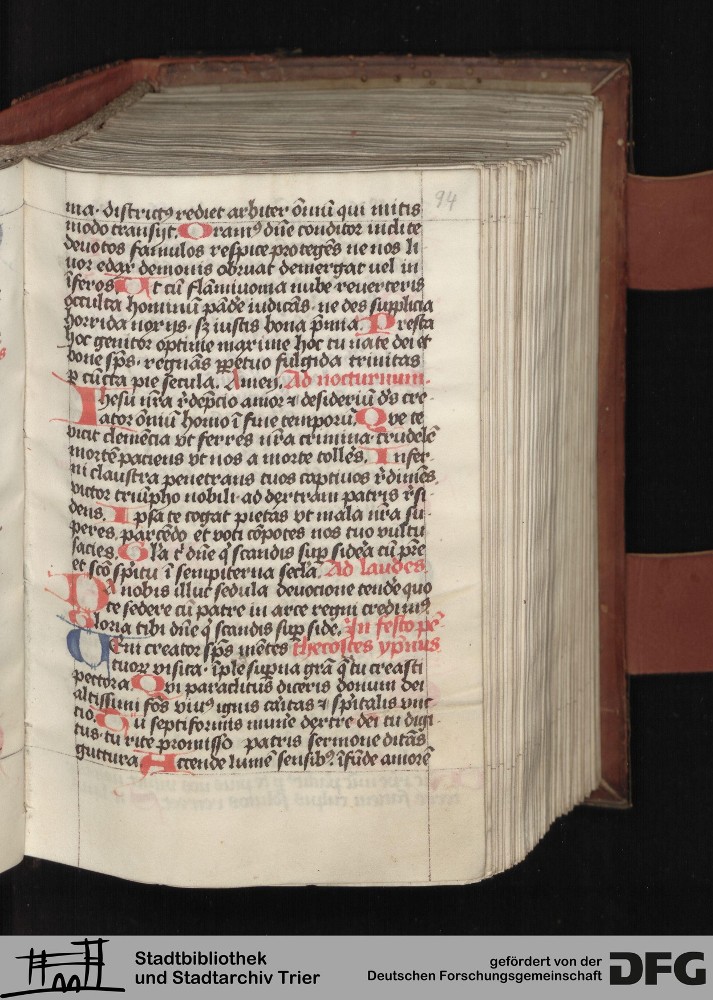 94
ma. districtꝯ rediet arbiter õniũ qui mitis
modo transijt. Oramꝯ dñe conditor inclite
deuotos famulos respice protegẽs ne nos li
uor edax demonis obruat demergat uel in
ĩferos. Ut cũ flãmiuoma nube reuerteris
occulta hominũ pãde iudicãs ne des supplicia
horrida noxijs. sꝫ iustis bona p̃mia. Presta
hoc genitor optime maxime hoc tu nate dei et
bone sp̃s. regnãs ꝑpetuo fulgida trinitas
ꝑ cũcta pie secula. Amen. Ad nocturnum.
Ihesu nr̃a r̃depcio amor ⁊ desideriũ d̃s cre
ator õniũ homo ĩ fine temporũ. Que te
vicit clemẽcia vt ferres nr̃a crimina crudelẽ
mortẽ paciens vt nos a morte tollẽs. Infer
ni claustra penetrans tuos captiuos r̃dimẽs.
victor triũpho nobili. ad dextram patris r̃si
dens. Ipsa te cogat pietas vt mala nr̃a su
peres. parcẽdo et voti cõpotes nos tuo vultu
sacies. Gl̃a t̃ dñe q̃ scandis sup sidera cũ pr̃e
et scõ spiritu ĩ sempiterna secl̃a. Ad laudes
Da nobis illuc sedula deuocione tendere quo
te sedere cũ patre in arce regni credimꝯ
Gloria tibi dñe q̃ scandis sup side. In festo pẽ
Ueni creator sp̃s mẽtes thecostes ypm̃us
tuorꝝ visita. ĩple supna grã q̃ tu creasti
pectora. Qui paraclitus diceris donum dei
altissimi fõs viuꝯ ignis caritas ⁊ sp̃italis vnc
tio. Tu septiformis mune dextre dei tu digi
tus. tu rite promisso patris sermone ditãs
guttura. Accende lumẽ sensibꝯ. ĩfũde amorẽ
Stadtbibliothek
und Stadtarchiv Trier
gefördert von der
Deutschen Forschungsgemeinschaft
DFG